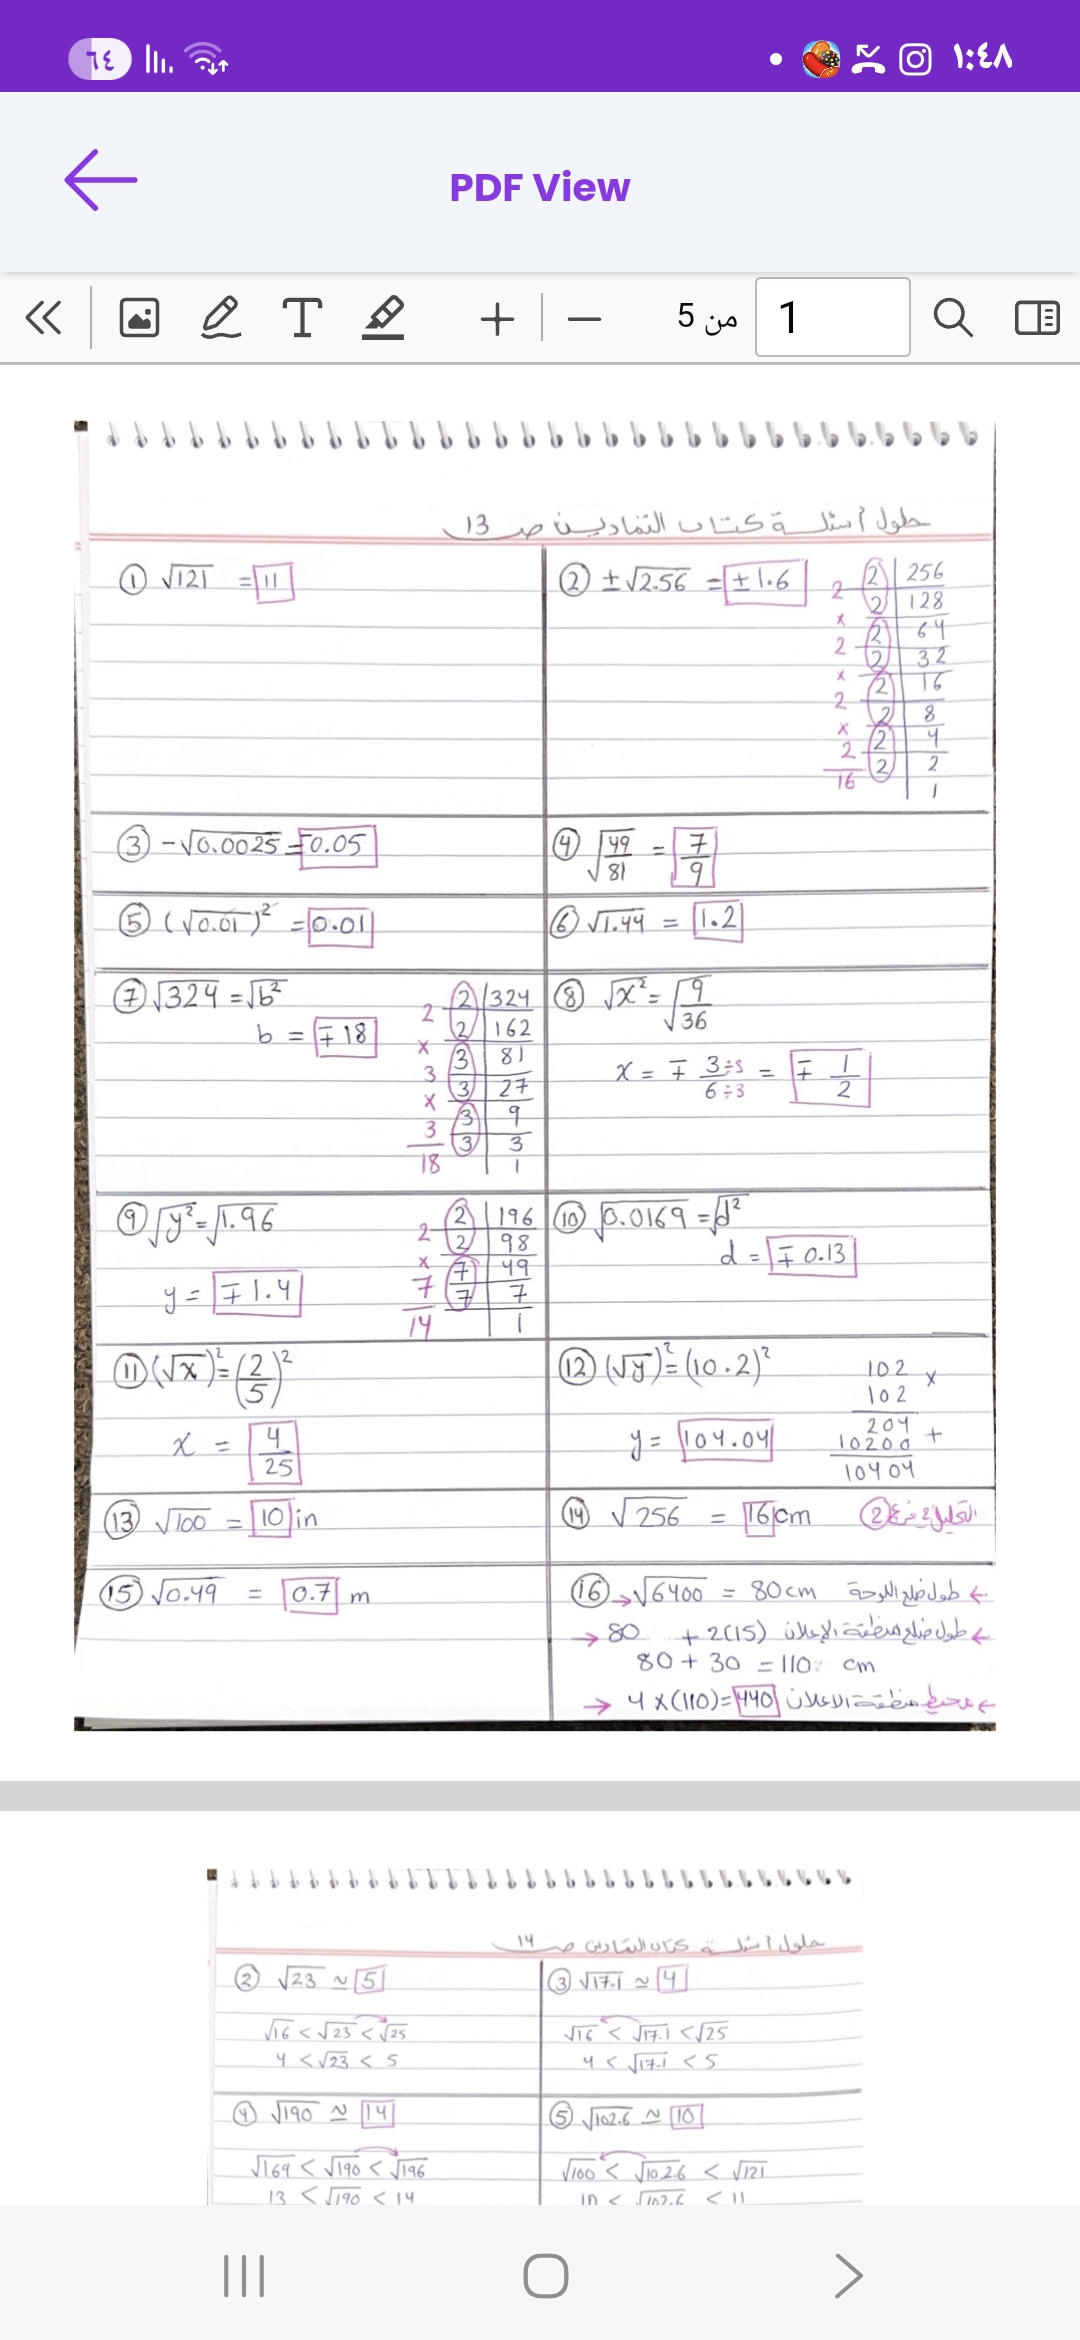 ٦٤
١:٤٨
PDF View
5 من
1
حلول أسئلة كتاب التمارين ص 13
① √121 = 11
② ±√2.56 = ±1.6
2 | 256
2 | 128
2 | 64
2 | 32
2 | 16
2 | 8
2 | 4
2 | 2
1
2
×
2
×
2
×
2
16
③ -√0.0025 = -0.05
④ √49/81 = 7/9
⑤ (√0.01)² = 0.01
⑥ √1.44 = 1.2
⑦ √324 = √b²
b = ∓18
2 | 324
2 | 162
3 | 81
3 | 27
3 | 9
3 | 3
1
2
×
3
×
3
18
⑧ √x² = √9/36
x = ∓ 3÷3/6÷3 = ∓ 1/2
⑨ √y² = √1.96
y = ∓1.4
2 | 196
2 | 98
7 | 49
7 | 7
1
2
×
7
14
⑩ √0.0169 = √d²
d = ∓0.13
⑪ (√x)² = (2/5)²
x = 4/25
⑫ (√y)² = (10.2)²
y = 104.04
102 ×
102
204 +
10200
10404
⑬ √100 = 10 in
⑭ √256 = 16 cm
التحليل في فرع ②
⑮ √0.49 = 0.7 m
⑯ → √6400 = 80 cm طول ضلع اللوحة ←
→ 80 + 2(15) طول ضلع منطقة الإعلان ←
80 + 30 = 110 cm
→ 4×(110) = 440 محيط منطقة الاعلان ←
حلول أسئلة كتاب التمارين ص ١٤
② √23 ≈ 5
√16 < √23 < √25
4 < √23 < 5
③ √17.1 ≈ 4
√16 < √17.1 < √25
4 < √17.1 < 5
④ √190 ≈ 14
√169 < √190 < √196
13 < √190 < 14
⑤ √102.6 ≈ 10
√100 < √102.6 < √121
10 < √102.6 < 11